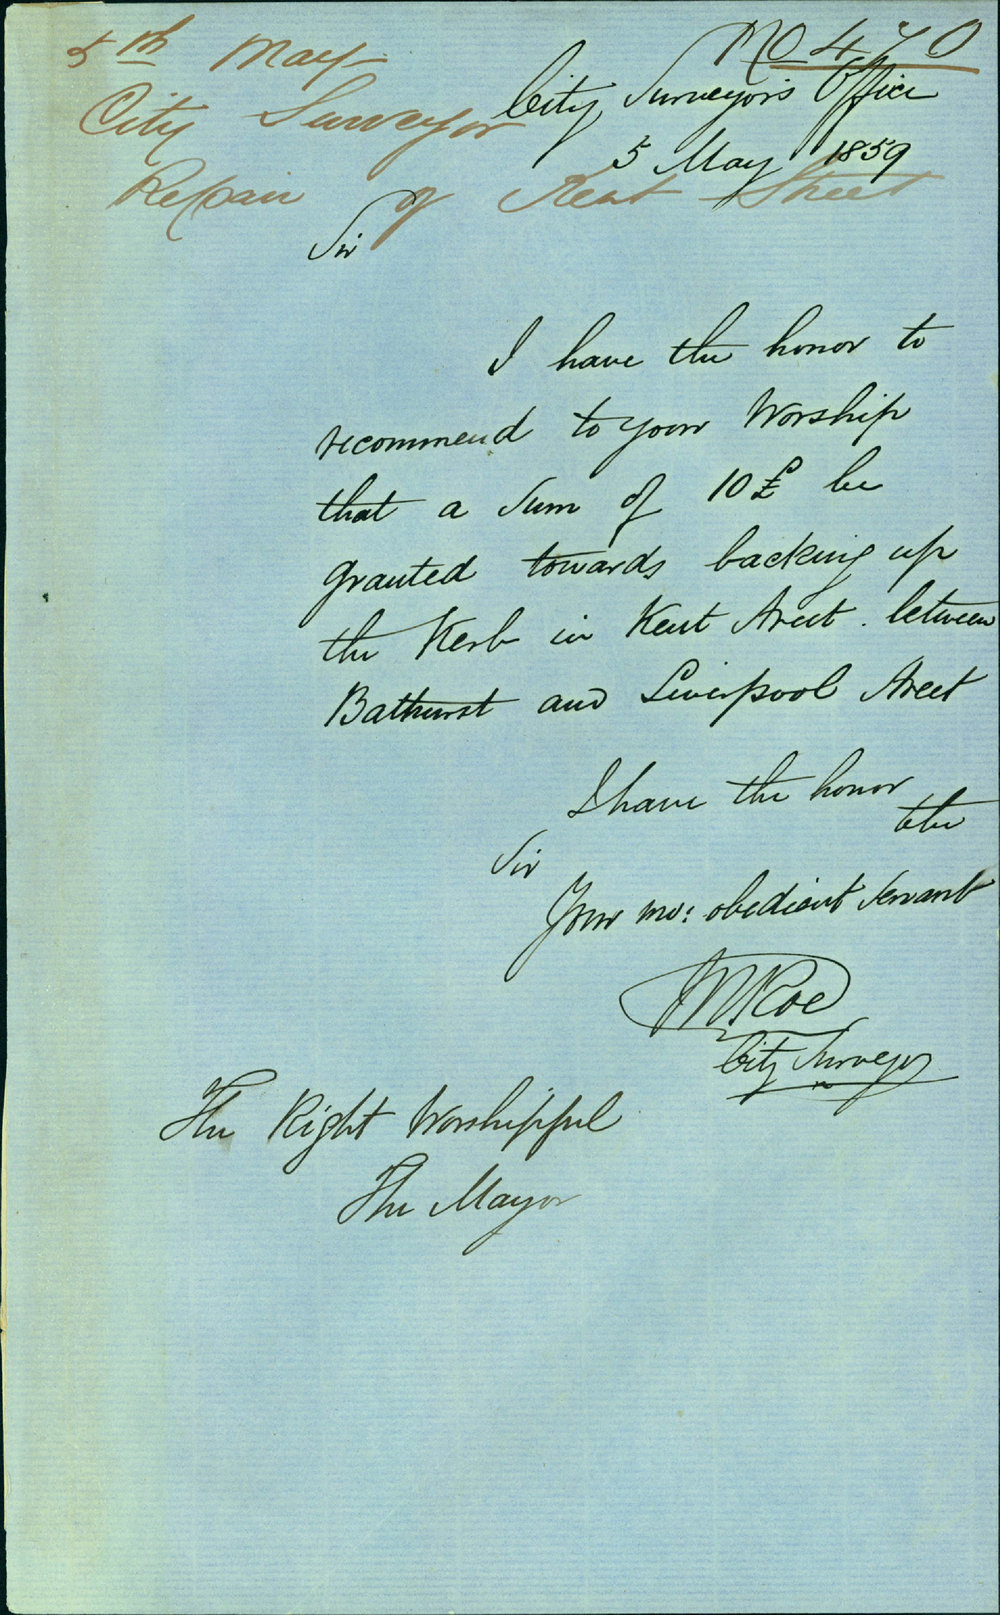 5th May
No 470
City Surveyor
City Surveyor's Office
5 May 1859
Repair of Kent Street
Sir
I have the honor to
recommend to your Worship
that a sum of 10£ be
granted towards backing up
the Kerb in Kent Street between
Bathurst and Liverpool Street
I have the honor
to be
Sir
Your mo: obedient servant
WRoe
City Surveyor
The Right Worshipful
The Mayor